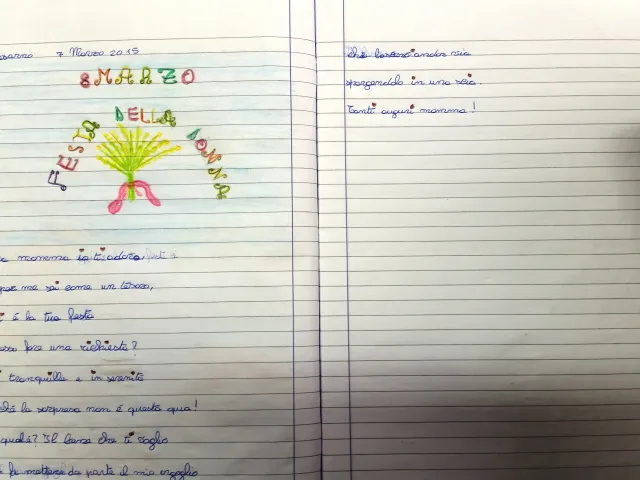 7 Marzo 2015
8 MARZO
FESTA DELLA DONNA
mamma io ti adoro
per me sei come un tesoro,
è la tua festa
fare una richiesta?
tranquilla e in serenità
la sorpresa non è questa qua!
qual'è? Il bene che ti voglio
mettere da parte il mio orgoglio
che lascerò andar via
spargendolo in una scia.
Tanti auguri mamma!